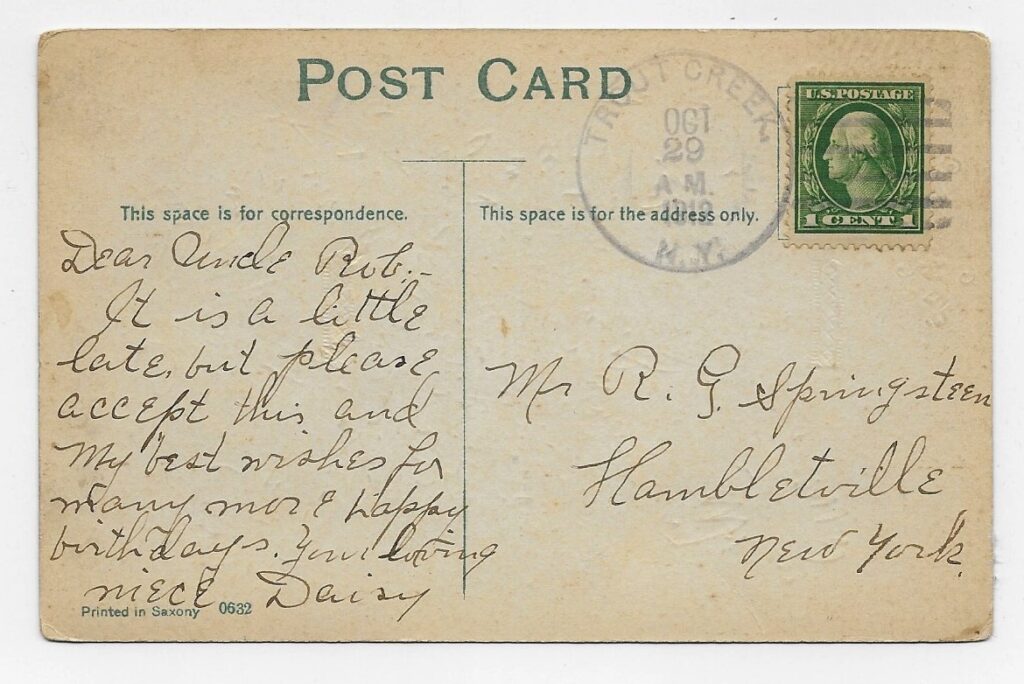 POST CARD
TROUT CREEK,
OCT
29
A M.
1912
N.Y.
U.S. POSTAGE
1 CENT 1
This space is for correspondence.
This space is for the address only.
Dear Uncle Rob.-
It is a little
late, but please
accept this and
My best wishes for
many more happy
birthdays. Your loving
niece Daisy
Mr R. G. Springsteen
Hambletville
New York.
Printed in Saxony 0632